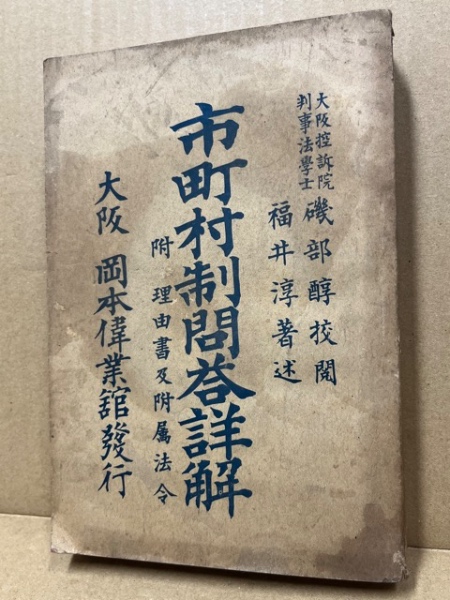 大阪控訴院
判事法學士
磯部醇挍閲
福井淳著述
市町村制問答詳解
附理由書及附属法令
大阪岡本偉業舘發行